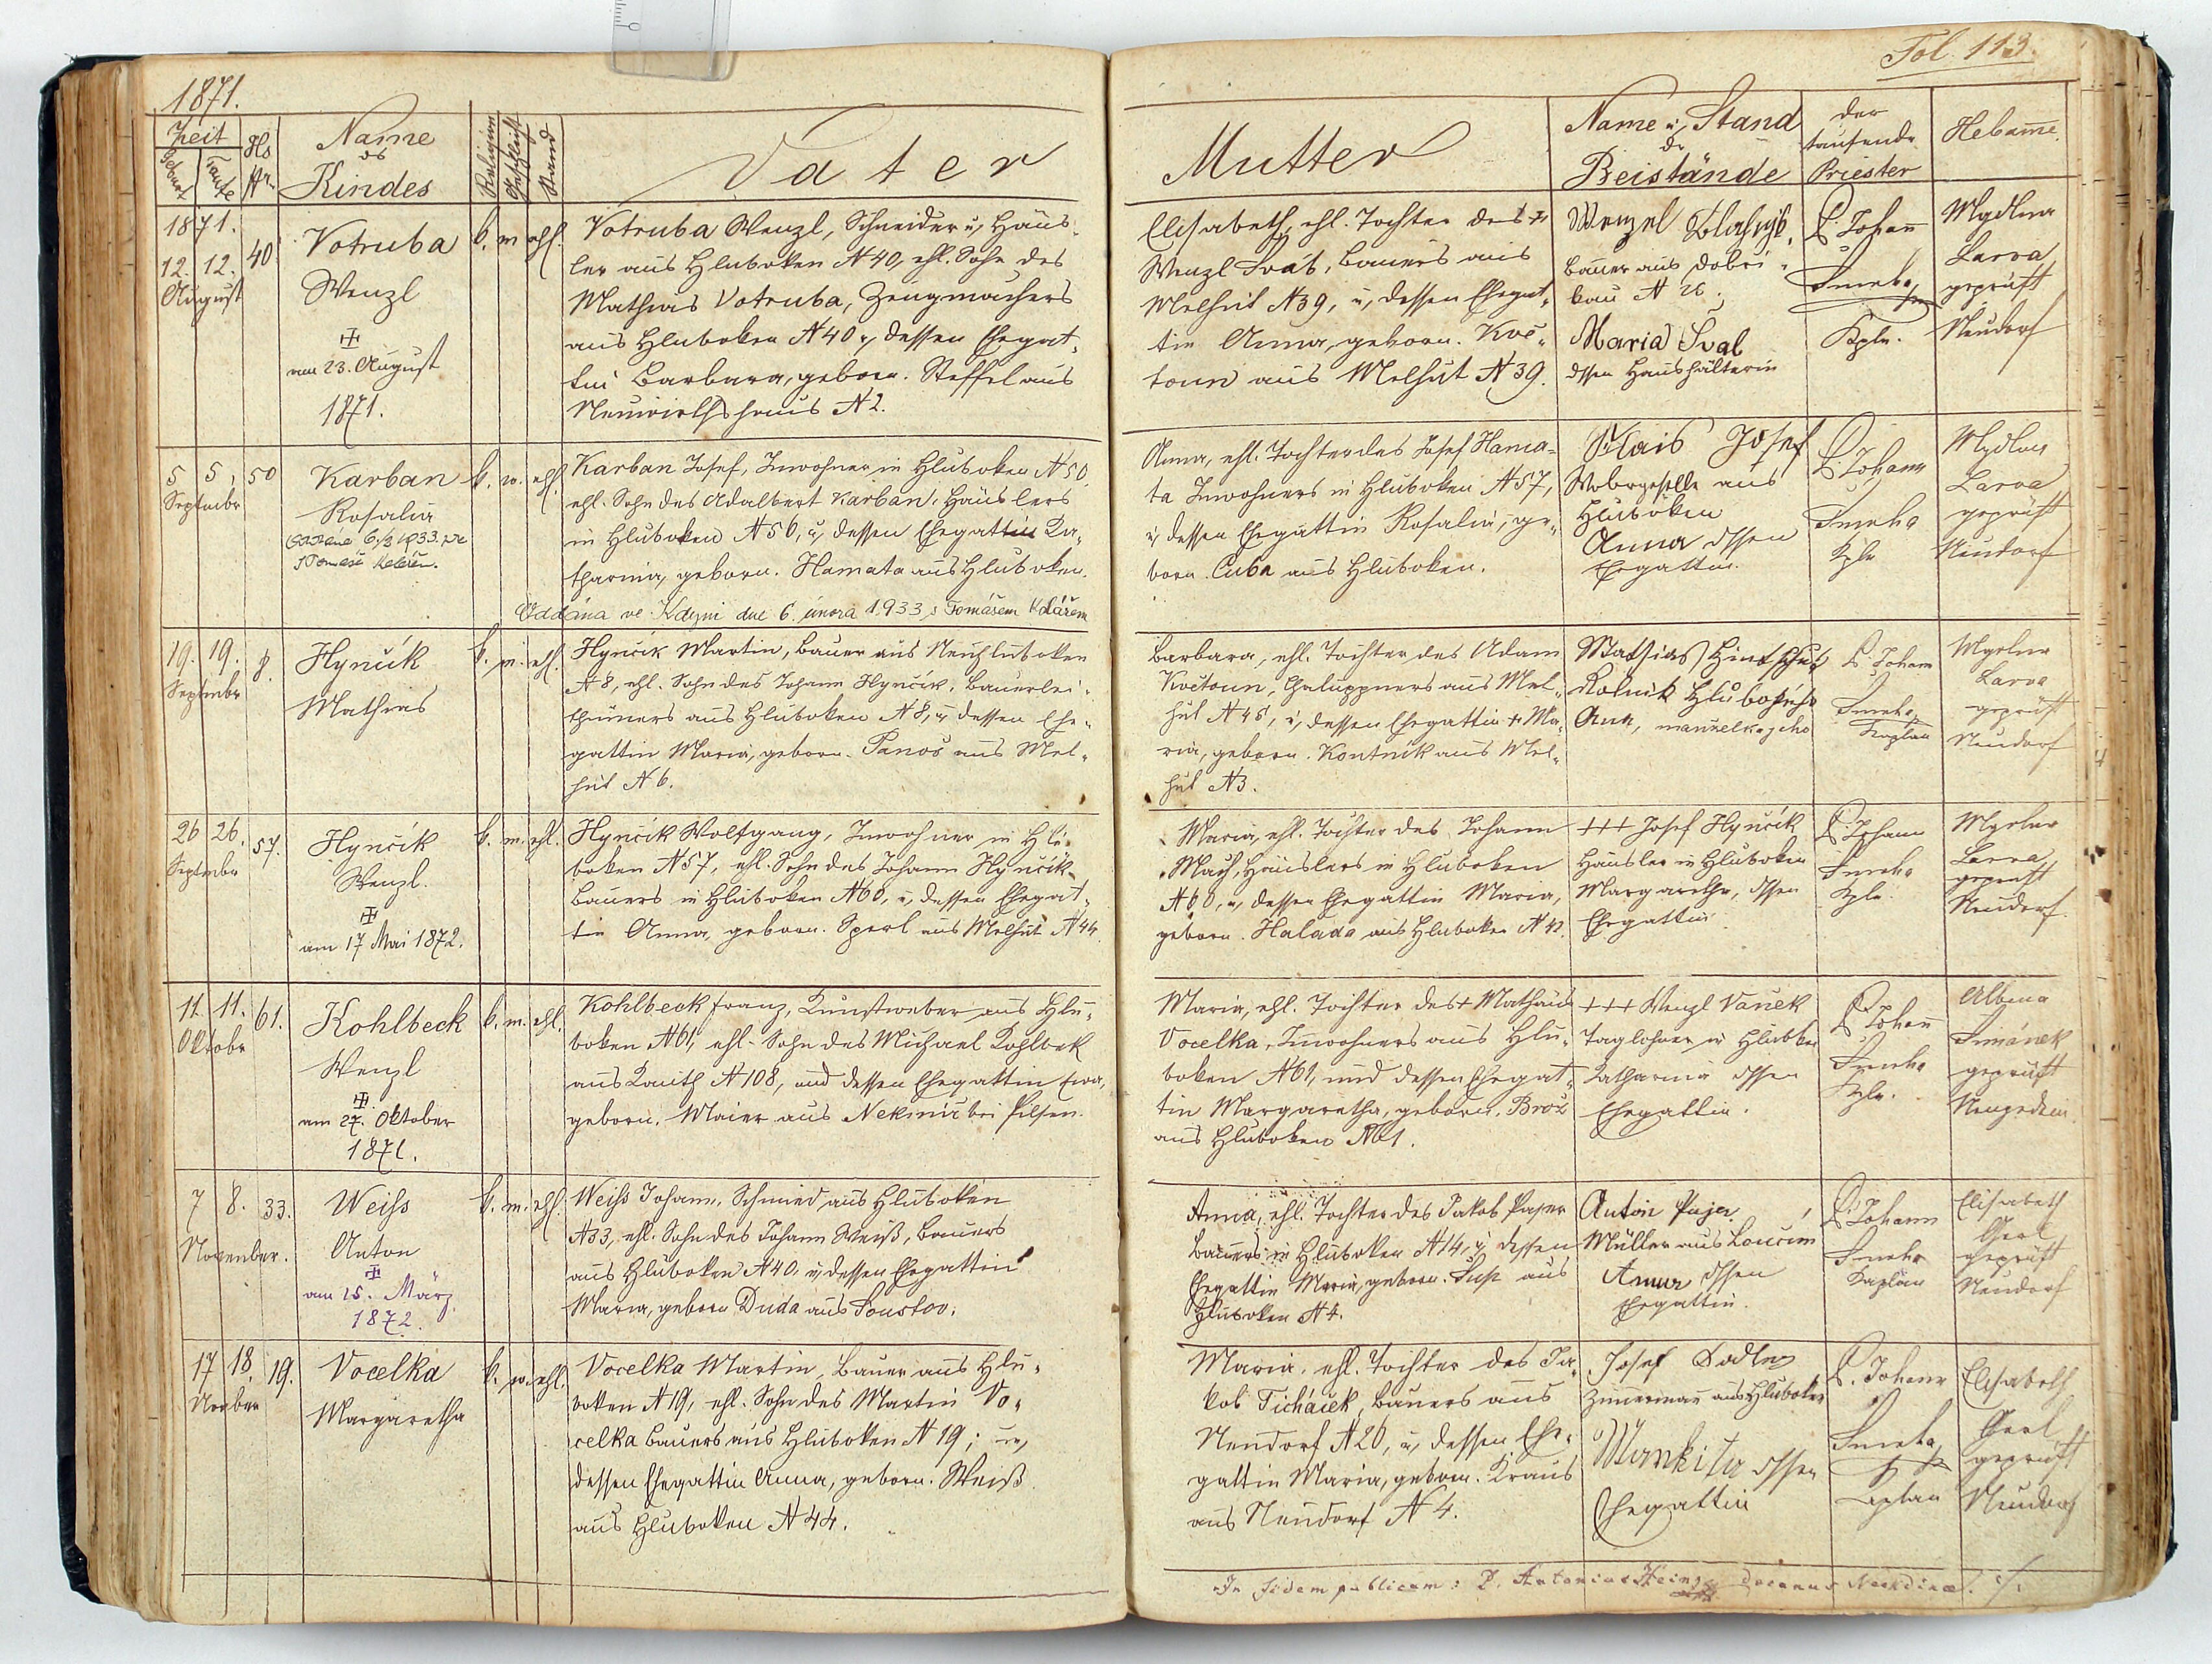 1871.
Fol. 113.
Zeit
Geburt
Taufe
Hs
Nr.
Name
ds
Kindes
Religion
Geschlecht
Stand
Vater
Mutter
Name u. Stand
dr
Beistände
der
taufende
Priester
Hebame.
1871.
12. 12.
August
40
Votruba
Wenzl
am 23. August
1871.
k. m. ehl.
Votruba Wenzl, Schneider u. Häus-
ler aus Hluboken N 40, ehl. Sohn des
Mathias Votruba, Zeugmachers
aus Hluboken N 40 u. dessen Ehegat-
tin Barbara, geborn. Steffel aus
Neuwirthshaus N 2.
Elisabeth, ehl. Tochter des †
Wenzl Sváb, Bauers aus
Melhut N 39, u. dessen Ehegat-
tin Anna, geborn. Kvě-
toun aus Melhut N 39.
Wenzel
Bauer aus Dobři-
kau N 26.
Maria Šval
dssen Haushälterin
P. Johann
Smeha
Kpln.
Magdlena
Larva
geprüft
Neudorf
5 5.
September
50
Karban
Rosalia
k. w. ehl.
Karban Josef, Inwohner in Hluboken N 50
ehl. Sohn des Adalbert Karban, Häuslers
in Hluboken N 50, u. dessen Ehegattin Ka-
tharina, geborn. Hamata aus Hluboken.
Oddána ve Kdyni dne 6. února 1933 s Tomášem Kolářem
Anna, ehl. Tochter des Josef Hama-
ta Inwohners in Hluboken N 57,
u. dessen Ehegattin Rosalia, ge-
born. Cuba aus Hluboken.
Josef
Webergeselle aus
Hluboken
Anna dssen
Ehegattin.
P. Johann
Smeha
Kpln
Magdlena
Larva
geprüft
Neudorf
19. 19.
September
8.
Hynčík
Mathias
k. m. ehl.
Hynčík Martin, Bauer aus Neuhluboken
N 8, ehl. Sohn des Johann Hynčík, Bauerlei-
thüners aus Hluboken N 8, u. dessen Ehe-
gattin Maria, geborn. Panoš aus Mel-
hut N 6.
Barbara, ehl. Tochter des Adam
Květoun, Chaluppners aus Mel-
hut N 45, u. dessen Ehegattin † Ma-
ria, geborn. Kontnik aus Mel-
hut N 3.
Mathias
Rolnik
Ann, manzelka jeho
P. Johann
Smeha
Kaplan
Larva
geprüft
Neudorf
26 26.
September
57.
Hynčík
Wenzl.
am 17 Mai 1872.
k. m. ehl.
Hynčík Wolfgang, Inwohner in Hlu-
boken N 57, ehl. Sohn des Johann Hynčík
Bauers in Hluboken N 60, u. dessen Ehegat-
tin Anna, geborn. Sperl aus Melhut N 44.
Maria, ehl. Tochter des Johann
Mach, Häuslers in Hluboken
N 60, u. dessen Ehegattin Maria,
geborn. Halada aus Hluboken N 42.
+++ Josef Hynčík
Häusler in Hluboken
Margarethe, dssen
Ehegattin
P. Johann
Smeha
Kpln.
Larva
geprüft
Neudorf.
11. 11.
Oktobr
61.
Kohlbeck
Wenzl
am 27. Oktober
1871.
k. m. ehl.
Kohlbeck Franz, Kunstweber aus Hlu-
boken N 61, ehl. Sohn des Michael Kohlbek
aus Kauth N 108, und dessen Ehegattin Ewa,
geborn. Maier aus Nekmir bei Pilsen.
Maria, ehl. Tochter des † Mathäus
Vocelka, Inwohners aus Hlu-
boken N 61, und dessen Ehegat-
tin Margaretha, geborn. Brož
aus Hluboken N 61.
+++ Wenzl Vaněk
Taglöhner in Hluboken
Katharina dssen
Ehegattin.
P. Johann
Smeha
Kpln.
Albina
Šimánek
geprüft
Neugedein
7 8.
November.
33.
Weiss
Anton
am 15. März
1872.
k. m. ehl.
Weiss Johann, Schmied aus Hluboken
N 33, ehl. Sohn des Johann Weiß, Bauers
aus Hluboken N 40, u. dessen Ehegattin
Maria, geborn Duda aus Soustov.
Anna, ehl. Tochter des Jakob Pajer
Bauers in Hluboken N 14, u. dessen
Ehegattin Maria, geborn. aus
Hluboken N 4.
Anton Pajer
Müller aus Loučim
Anna dssen
Ehegattin.
P. Johann
Smeha
Kaplan
Elisabeth
Gerl
geprüft
Neudorf
17 18.
19.
Vocelka
Margaretha
k. w. ehl.
Vocelka Martin, Bauer aus Hlu-
boken N 19, ehl. Sohn des Martin Vo-
celka Bauers aus Hluboken N 19; u.
dessen Ehegattin Anna, geborn. Weiß
aus Hluboken N 44.
Maria, ehl. Tochter des Ja-
kob Ticháček, Bauers aus
Neudorf N 20, u. dessen Ehe-
gattin Maria, geborn. Kraus
aus Neudorf N 4.
Josef
Zimmerman aus Hluboken
dssen
Ehegattin
P. Johann
Smeha
Kaplan
Elisabeth
Gerl
geprüft
Neudorf
In fidem publicam: P. Antonius decanus